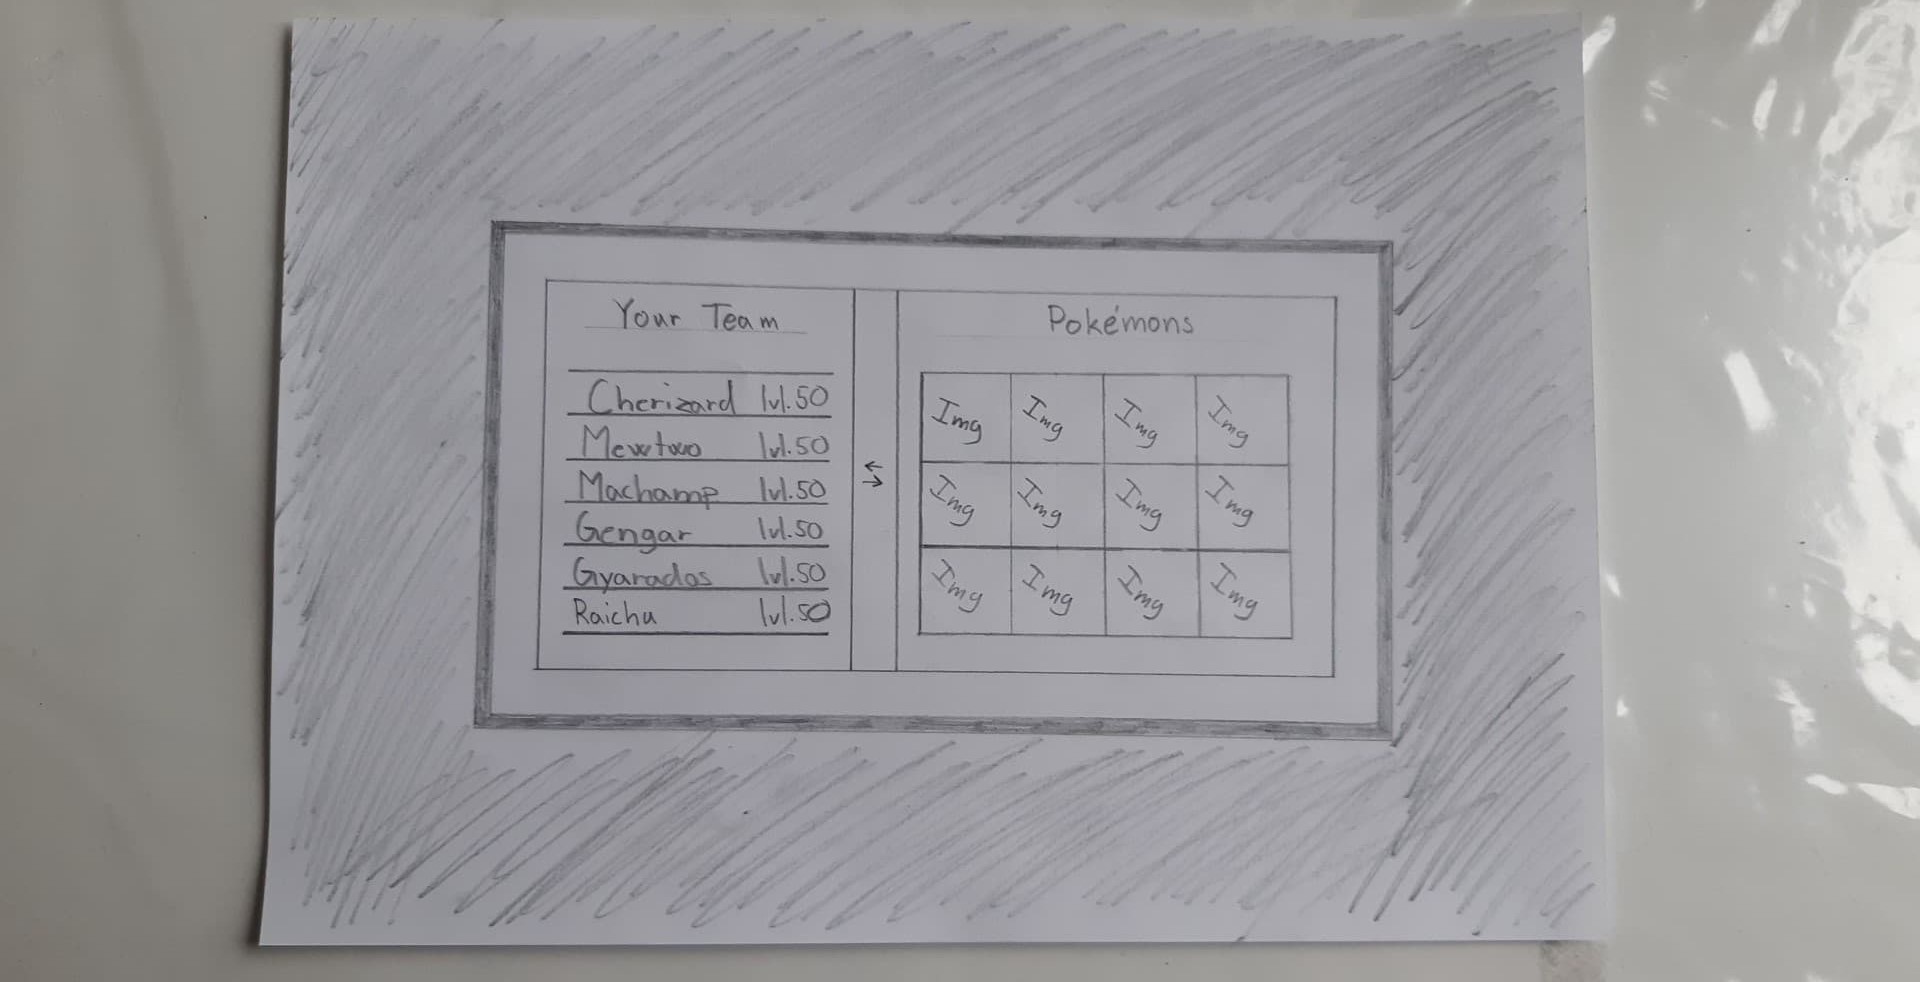 Your Team
Cherizard lvl.50
Mewtwo lvl.50
Machamp lvl.50
Gengar lvl.50
Gyarados lvl.50
Raichu lvl.50
Pokémons
Img Img Img Img
Img Img Img Img
Img Img Img Img